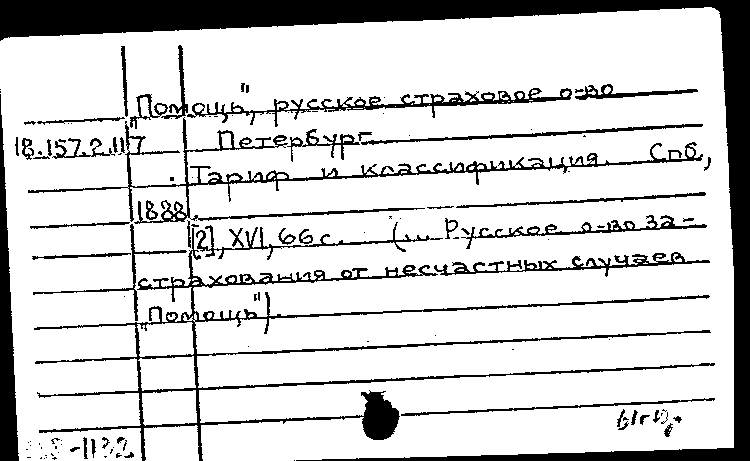 "Помощь", русское страховое о-во
18.157.2.117 Петербург.
Тариф и классификация. Спб,
1888.
[2], XVI, 66 с. (... Русское о-во за-
страхования от несчастных случаев
"Помощь").